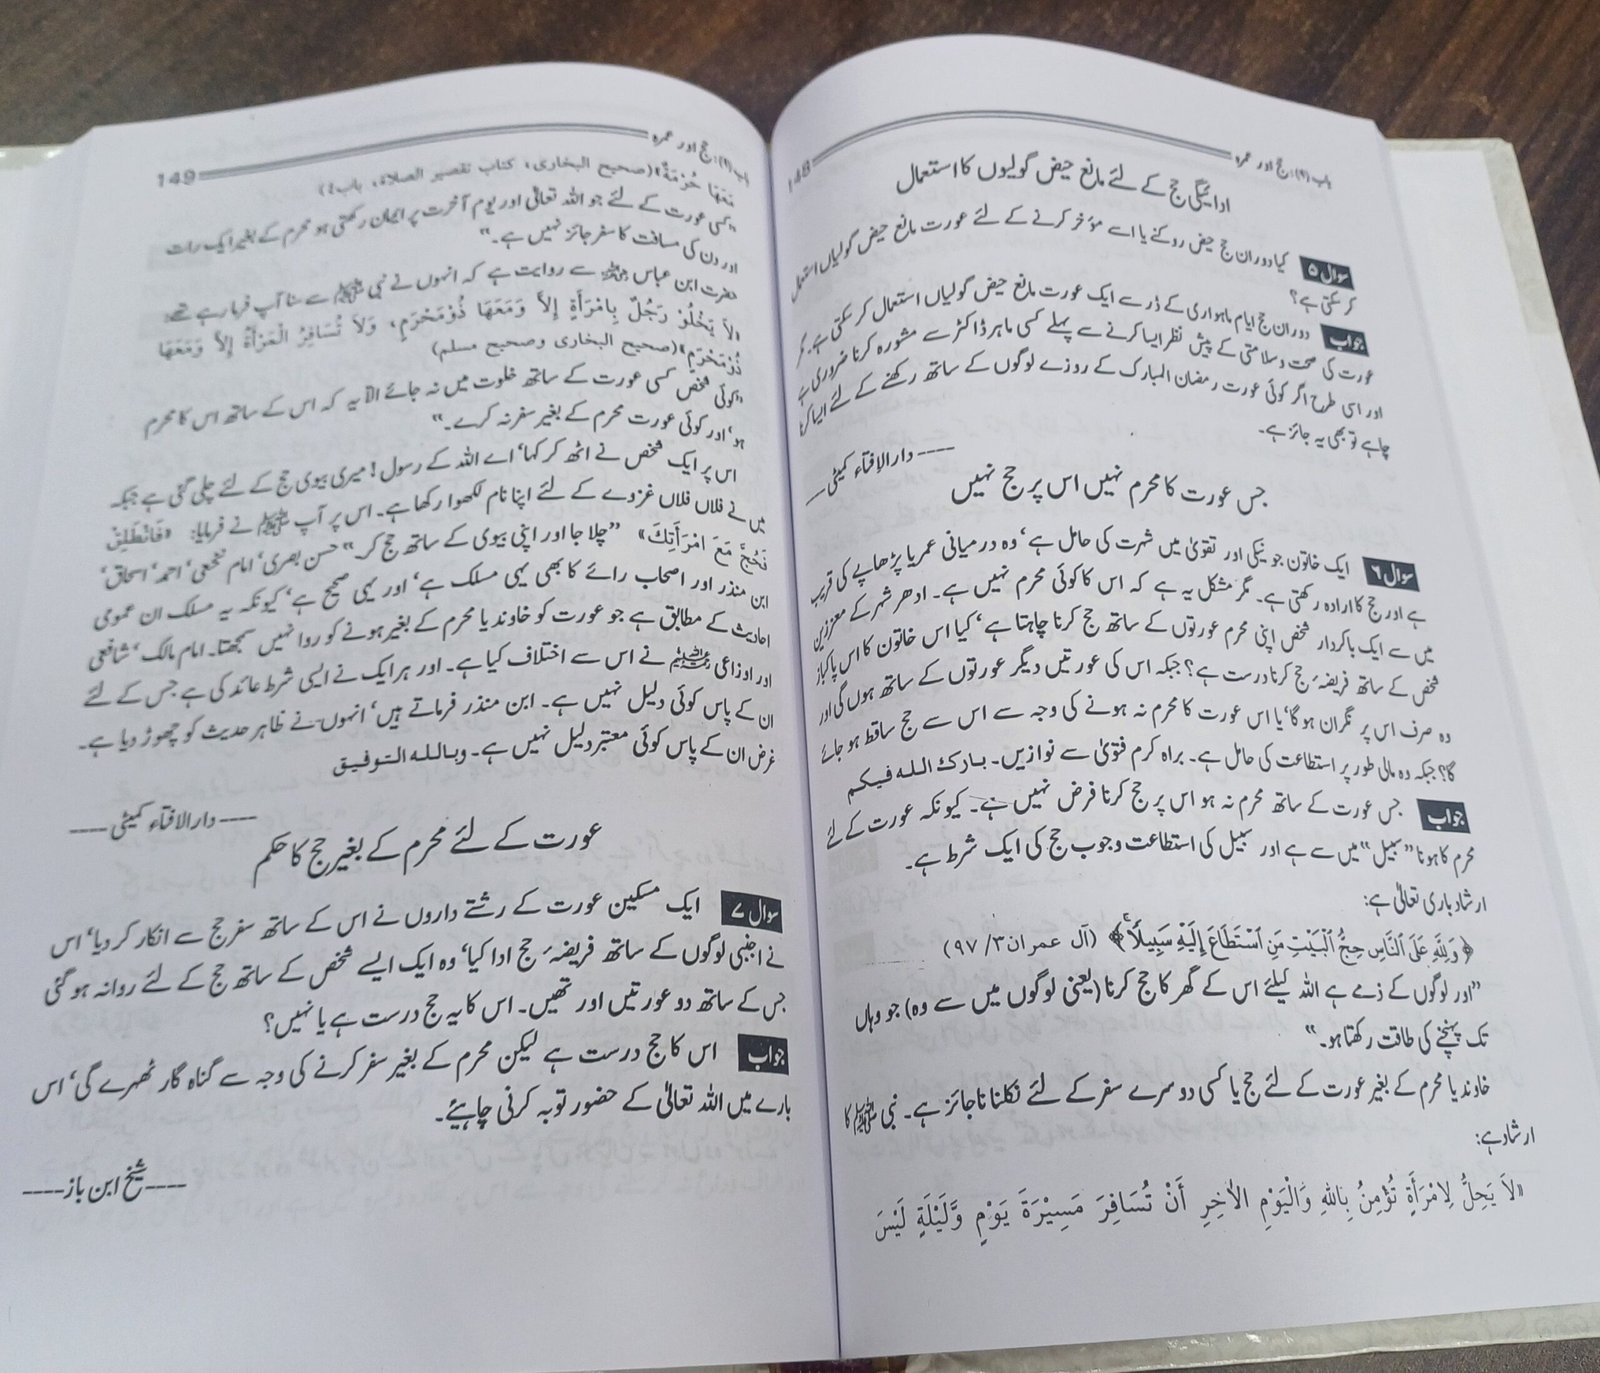 باب (۹): حج اور عمرہ 148
ادائیگی حج کے لئے مانع حیض گولیوں کا استعمال
سوال ۵ کیا دوران حج حیض روکنے یا اسے مؤخر کرنے کے لئے عورت مانع حیض گولیاں استعمال
کر سکتی ہے؟
جواب دوران حج ایام ماہواری کے ڈر سے ایک عورت مانع حیض گولیاں استعمال کر سکتی ہے۔ مگر
عورت کی صحت و سلامتی کے پیش نظر ایسا کرنے سے پہلے کسی ماہر ڈاکٹر سے مشورہ کرنا ضروری ہے
اور اسی طرح اگر کوئی عورت رمضان المبارک کے روزے لوگوں کے ساتھ رکھنے کے لئے ایسا کرنا
چاہے تو بھی یہ جائز ہے۔
----دارالافتاء کمیٹی----
جس عورت کا محرم نہیں اس پر حج نہیں
سوال ۶ ایک خاتون جو نیکی اور تقویٰ میں شہرت کی حامل ہے‘ وہ درمیانی عمر یا بڑھاپے کی قریب
ہے اور حج کا ارادہ رکھتی ہے۔ مگر مشکل یہ ہے کہ اس کا کوئی محرم نہیں ہے۔ ادھر شہر کے معززین
میں سے ایک باکردار شخص اپنی محرم عورتوں کے ساتھ حج کرنا چاہتا ہے‘ کیا اس خاتون کا اس پاکباز
شخص کے ساتھ فریضہٴ حج کرنا درست ہے؟ جبکہ اس کی عورتیں دیگر عورتوں کے ساتھ ہوں گی اور
وہ صرف اس پر نگران ہوگا‘ یا اس عورت کا محرم نہ ہونے کی وجہ سے اس سے حج ساقط ہو جائے
گا؟ جبکہ وہ مالی طور پر استطاعت کی حامل ہے۔ براہ کرم فتویٰ سے نوازیں۔ بارك الله فيكم
جواب جس عورت کے ساتھ محرم نہ ہو اس پر حج کرنا فرض نہیں ہے۔ کیونکہ عورت کے لئے
محرم کا ہونا ”سبیل“ میں سے ہے اور سبیل کی استطاعت وجوب حج کی ایک شرط ہے۔
ارشاد باری تعالیٰ ہے:
﴿ وَلِلَّهِ عَلَى ٱلنَّاسِ حِجُّ ٱلْبَيْتِ مَنِ ٱسْتَطَاعَ إِلَيْهِ سَبِيلًا ﴾ (آل عمران۳/ ۹۷)
”اور لوگوں کے ذمے ہے اللہ کیلئے اس کے گھر کا حج کرنا (یعنی لوگوں میں سے وہ) جو وہاں
تک پہنچنے کی طاقت رکھتا ہو۔“
خاوند یا محرم کے بغیر عورت کے لئے حج یا کسی دوسرے سفر کے لئے نکلنا ناجائز ہے۔ نبی ﷺ کا
ارشاد ہے:
«لاَ يَحِلُّ لِامْرَأَةٍ تُؤْمِنُ بِاللهِ وَالْيَوْمِ الاٰخِرِ أَنْ تُسَافِرَ مَسِيْرَةَ يَوْمٍ وَّلَيْلَةٍ لَيْسَ
باب (۹): حج اور عمرہ 149
مَعَهَا حُرْمَةٌ»(صحيح البخاری، کتاب تقصير الصلاة، باب٤)
”کسی عورت کے لئے جو اللہ تعالیٰ اور یوم آخرت پر ایمان رکھتی ہو محرم کے بغیر ایک رات
اور دن کی مسافت کا سفر جائز نہیں ہے۔“
حضرت ابن عباس رضی اللہ عنہ سے روایت ہے کہ انہوں نے نبی ﷺ سے سنا آپ فرما رہے تھے:
«لاَ يَخْلُوْ رَجُلٌ بِامْرَأَةٍ إِلاَّ وَمَعَهَا ذُوْمَحْرَمٍ، وَلاَ تُسَافِرُ الْمَرْأَةُ إِلاَّ وَمَعَهَا
ذُوْمَحْرَمٍ»(صحيح البخاری وصحيح مسلم)
”کوئی شخص کسی عورت کے ساتھ خلوت میں نہ جائے الا یہ کہ اس کے ساتھ اس کا محرم
ہو‘ اور کوئی عورت محرم کے بغیر سفر نہ کرے۔“
اس پر ایک شخص نے اٹھ کر کہا‘ اے اللہ کے رسول! میری بیوی حج کے لئے چلی گئی ہے جبکہ
میں نے فلاں فلاں غزوے کے لئے اپنا نام لکھوا رکھا ہے۔ اس پر آپ ﷺ نے فرمایا: «فَانْطَلِقْ
فَحُجَّ مَعَ امْرَأَتِكَ» ”چلا جا اور اپنی بیوی کے ساتھ حج کر۔“ حسن بصری‘ امام نخعی‘ احمد‘ اسحاق‘
ابن منذر اور اصحاب رائے کا بھی یہی مسلک ہے‘ اور یہی صحیح ہے‘ کیونکہ یہ مسلک ان عمومی
احادیث کے مطابق ہے جو عورت کو خاوند یا محرم کے بغیر ہونے کو روا نہیں سمجھتا۔ امام مالک‘ شافعی
اور اوزاعی رحمۃ اللہ علیہم نے اس سے اختلاف کیا ہے۔ اور ہر ایک نے ایسی شرط عائد کی ہے جس کے لئے
ان کے پاس کوئی دلیل نہیں ہے۔ ابن منذر فرماتے ہیں‘ انہوں نے ظاہر حدیث کو چھوڑ دیا ہے۔
غرض ان کے پاس کوئی معتبر دلیل نہیں ہے۔ وبالله التوفيق
----دارالافتاء کمیٹی----
عورت کے لئے محرم کے بغیر حج کا حکم
سوال ۷ ایک مسکین عورت کے رشتے داروں نے اس کے ساتھ سفر حج سے انکار کر دیا‘ اس
نے اجنبی لوگوں کے ساتھ فریضہٴ حج ادا کیا‘ وہ ایک ایسے شخص کے ساتھ حج کے لئے روانہ ہو گئی
جس کے ساتھ دو عورتیں اور تھیں۔ اس کا یہ حج درست ہے یا نہیں؟
جواب اس کا حج درست ہے لیکن محرم کے بغیر سفر کرنے کی وجہ سے گناہ گار ٹھہرے گی‘ اس
بارے میں اللہ تعالیٰ کے حضور توبہ کرنی چاہئے۔
----شیخ ابن باز----